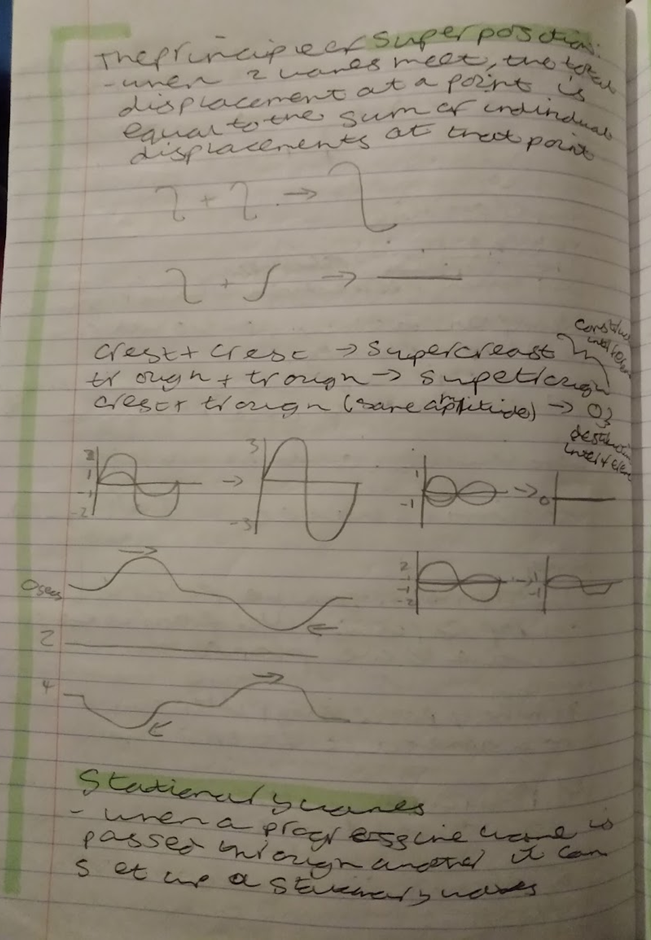 The Principle of Superposition:
- when 2 waves meet, the total
displacement at a point is
equal to the sum of individual
displacements at that point
+ →
+ →
crest + crest → Supercreast
trough + trough → Supetrough
crest + trough (same amplitude) → 0}
constructive
interference
destructive
interference
2
1
-1
-2
→
3
-3
1
-1
→
0
2
1
-1
-2
→
1
-1
0secs
2
4
Stationary waves
- when a progressive wave is
passed through another it can
set up a stationary waves